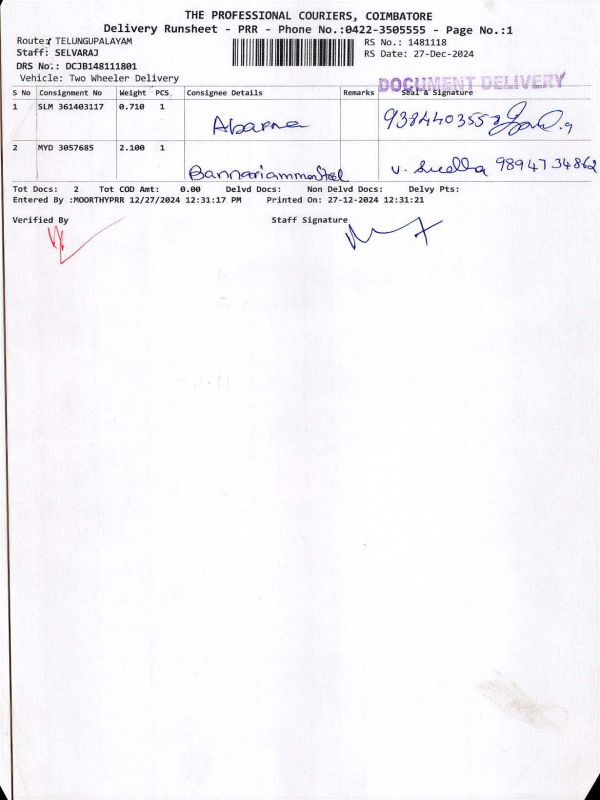 THE PROFESSIONAL COURIERS, COIMBATORE
Delivery Runsheet - PRR - Phone No.:0422-3505555 - Page No.:1
Route: TELUNGUPALAYAM
RS No.: 1481118
Staff: SELVARAJ
RS Date: 27-Dec-2024
DRS No.: DCJB148111801
Vehicle: Two Wheeler Delivery
DOCUMENT DELIVERY
S No Consignment No Weight PCS Consignee Details Remarks Seal & Signature
1 SLM 361403117 0.710 1
Abarna
2 MYD 3057685 2.100 1
v. 9894734862
Tot Docs: 2 Tot COD Amt: 0.00 Delvd Docs: Non Delvd Docs: Delvy Pts:
Entered By :MOORTHYPRR 12/27/2024 12:31:17 PM Printed On: 27-12-2024 12:31:21
Verified By Staff Signature